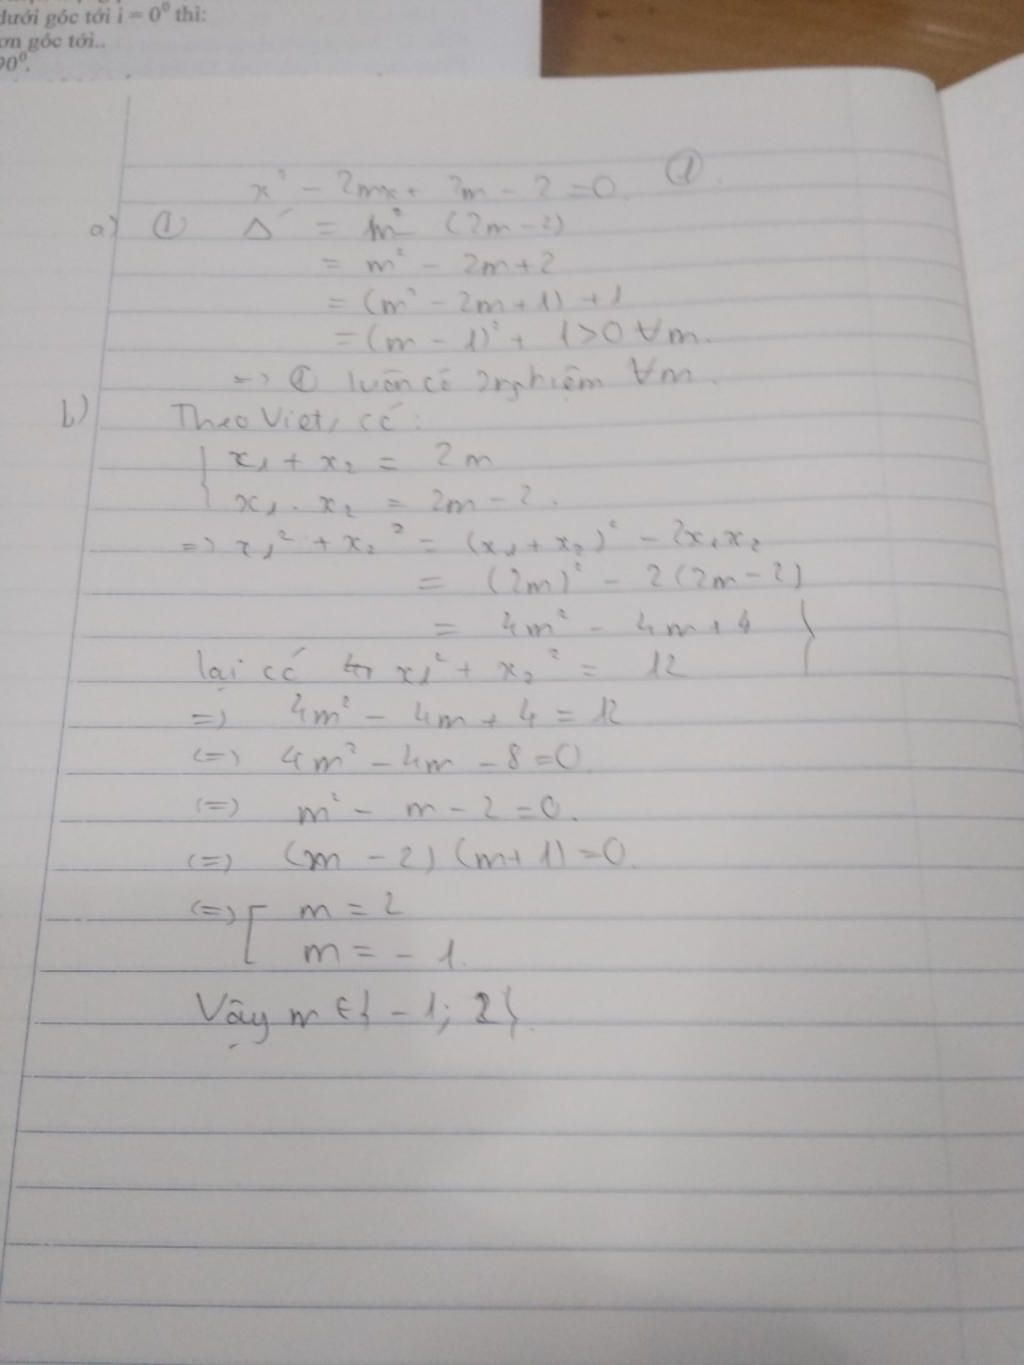 dưới góc tới i = 0⁰ thì:
ơn góc tới..
90⁰.
x² - 2mx + 2m - 2 = 0. ①.
a) ① Δ' = m² (2m - 2)
= m² - 2m + 2
= (m² - 2m + 1) + 1
= (m - 1)² + 1 > 0 ∀m.
=> ① luôn có 2 nghiệm ∀m.
b) Theo Viet, có:
{ x₁ + x₂ = 2m
x₁ . x₂ = 2m - 2.
=> x₁² + x₂² = (x₁ + x₂)² - 2x₁x₂
= (2m)² - 2(2m - 2)
= 4m² - 4m + 4 }
lại có x₁² + x₂² = 12
=> 4m² - 4m + 4 = 12
(=) 4m² - 4m - 8 = 0
(=) m² - m - 2 = 0.
(=) (m - 2) (m + 1) = 0.
(=) [ m = 2
m = - 1.
Vậy m ∈ { - 1; 2 }.